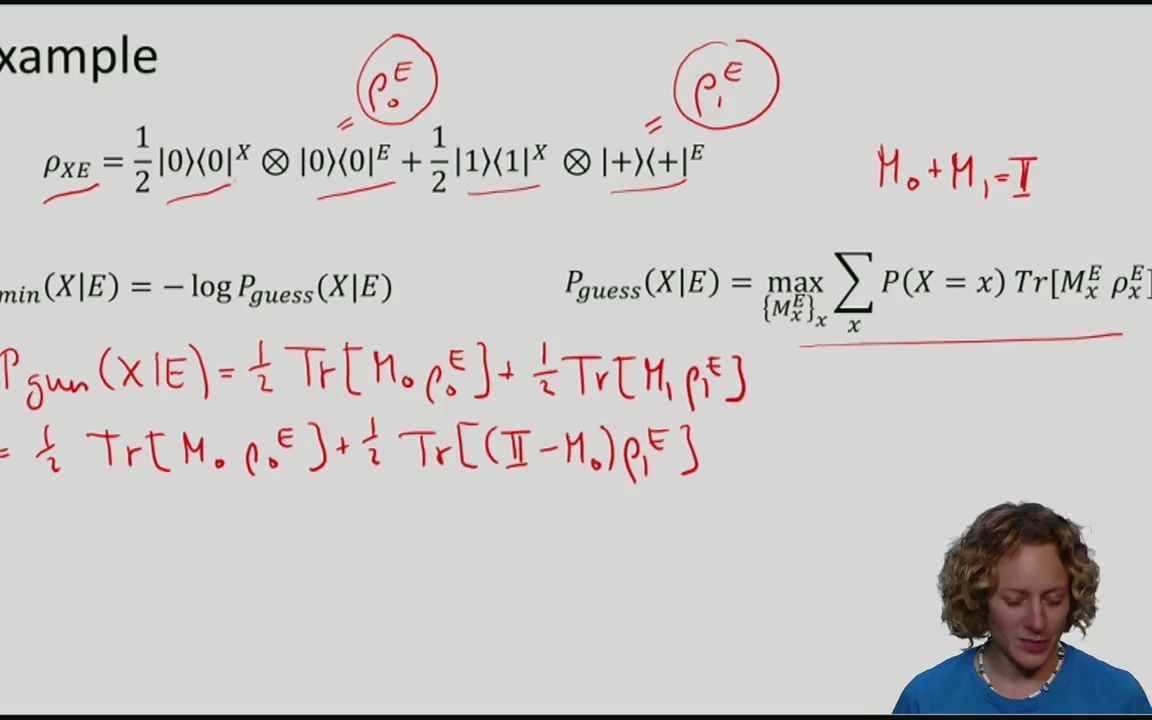 xample
ρ₀ᴱ ρ₁ᴱ
= =
ρ_XE = 1/2 |0⟩⟨0|^X ⊗ |0⟩⟨0|^E + 1/2 |1⟩⟨1|^X ⊗ |+⟩⟨+|^E
M₀ + M₁ = 𝕀
min(X|E) = − log P_guess(X|E)
P_guess(X|E) = max_{{M_x^E}_x} ∑_x P(X = x) Tr[M_x^E ρ_x^E]
P_guess(X|E) = 1/2 Tr[M₀ ρ₀ᴱ] + 1/2 Tr[M₁ ρ₁ᴱ]
= 1/2 Tr[M₀ ρ₀ᴱ] + 1/2 Tr[(𝕀 − M₀) ρ₁ᴱ]